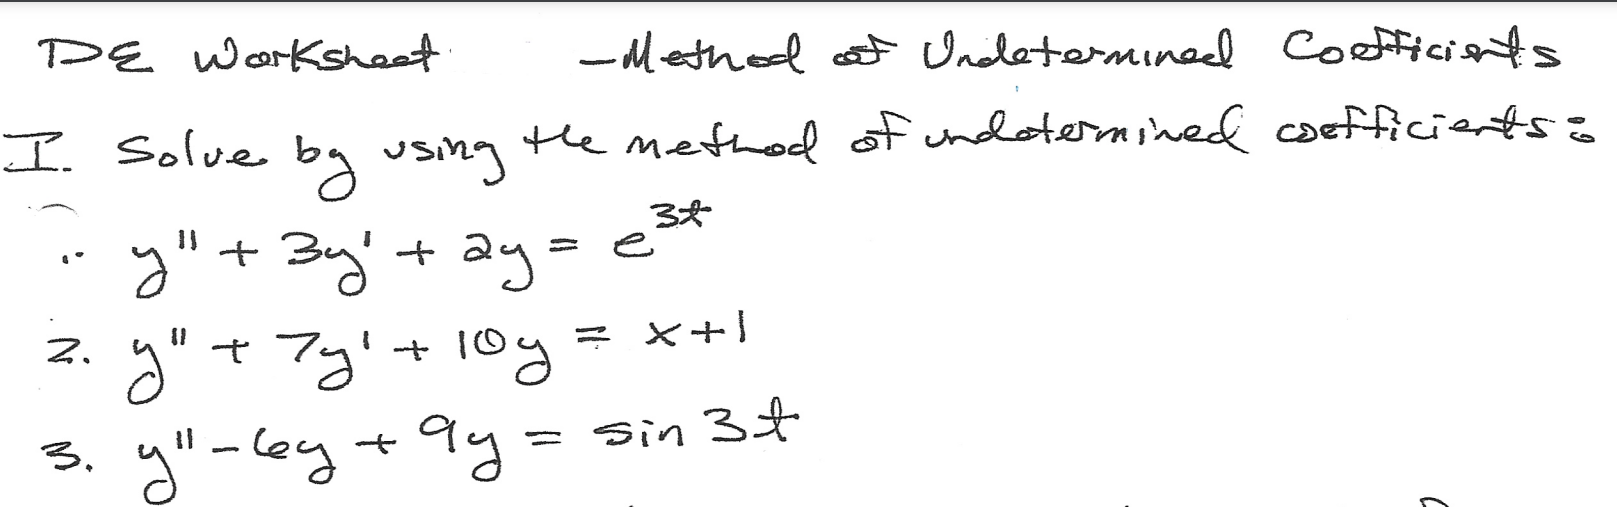 DE Worksheet - Method of Undetermined Coefficients
I. Solve by using the method of undetermined coefficients:
1. y'' + 3y' + 2y = e^{3t}
2. y'' + 7y' + 10y = x+1
3. y'' - 6y + 9y = sin 3t